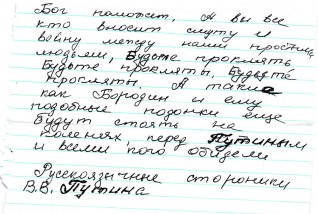 Бог поможет, А вы все
кто вносит смуту и
вейну между нами простыми
людьми, Будьте прокляты
Будьте прокляты, Будьте
Прокляты. А такие
как Бородин и ему
подобные подонки еще
будут стоять на
коленях, перед Путиным
и всеми кого обидели
Русскоязычные стороники
В.В. Путина